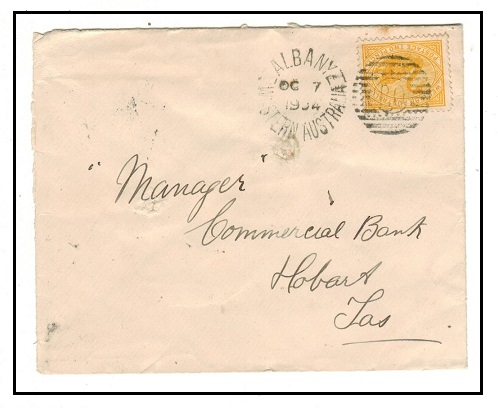 ALBANY
OC 7
1904
WESTERN AUSTRALIA
"Manager"
Commercial Bank
Hobart
Tas